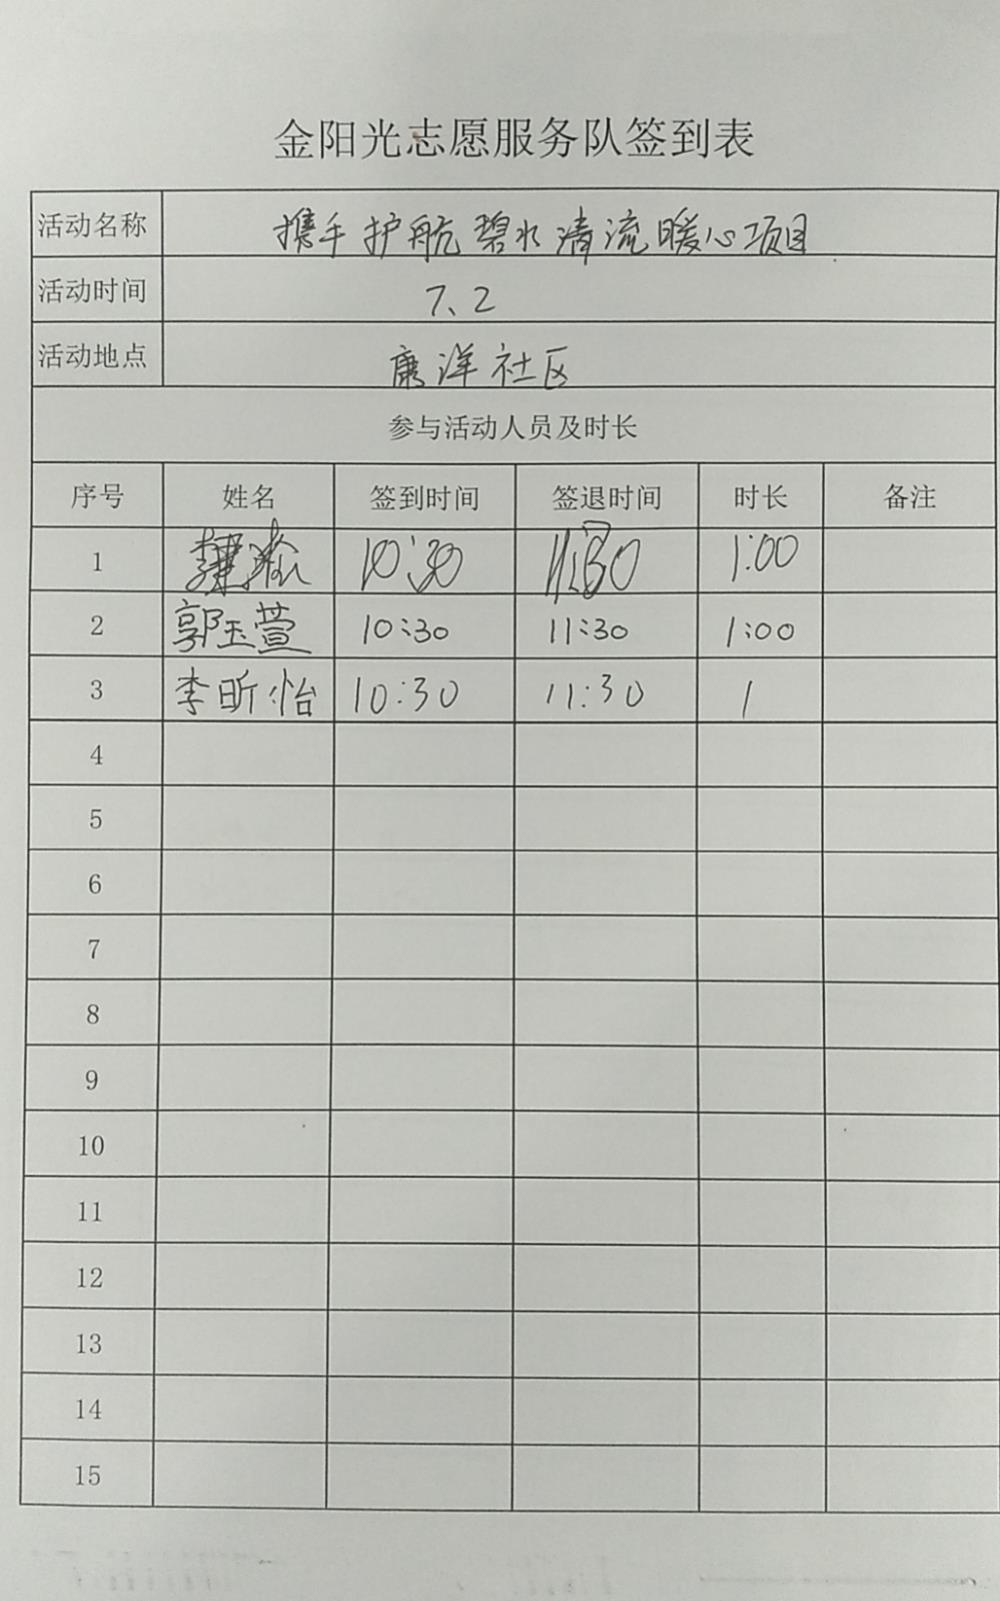 金阳光志愿服务队签到表
活动名称 携手护航碧水清流暖心项目
活动时间 7、2
活动地点 唐洋社区
参与活动人员及时长
序号 姓名 签到时间 签退时间 时长 备注
1 10:30 11:30 1:00
2 郭玉萱 10:30 11:30 1:00
3 李昕怡 10:30 11:30 1
4
5
6
7
8
9
10
11
12
13
14
15